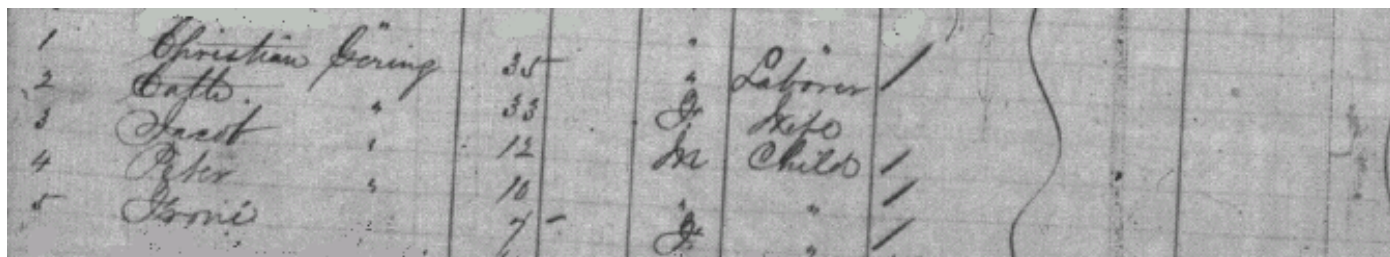 1 Christian Göring 35 " Laborer /
2 Cath. " 33 F Wife
3 Jacob " 12 M Child /
4 Peter " 10 " " /
5 Froni " 7 F " /